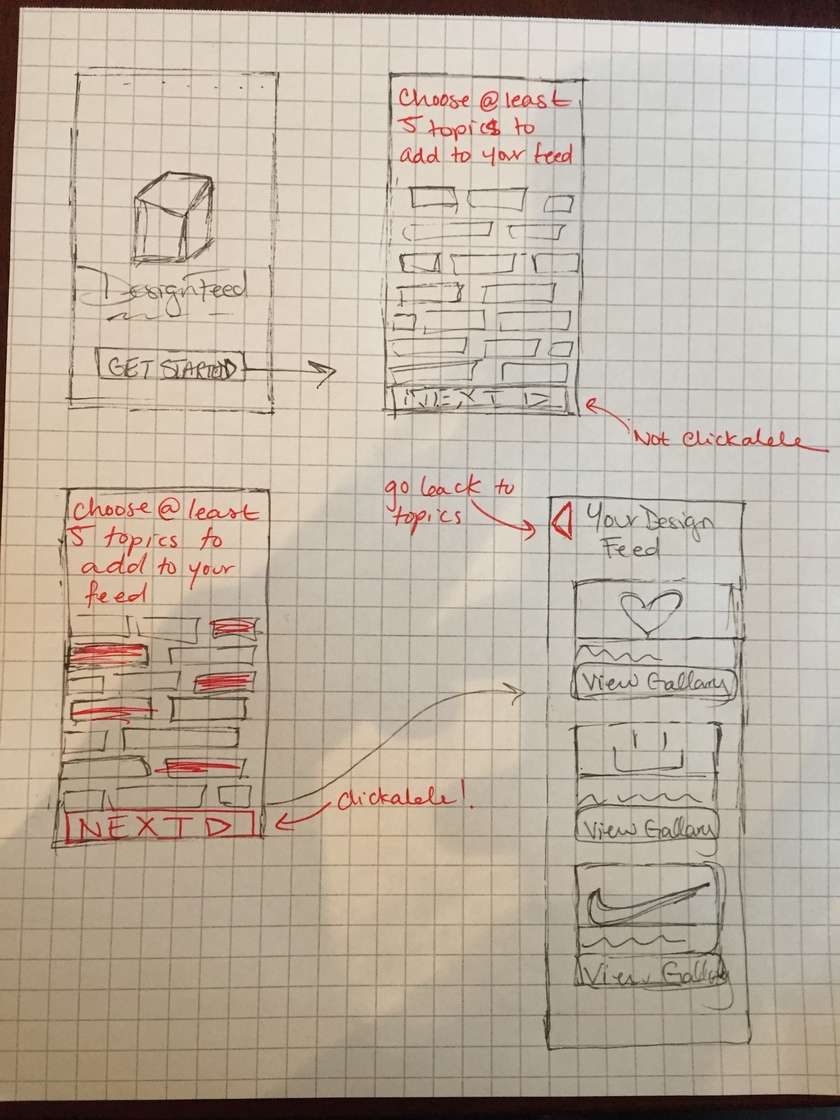 Choose @ least
5 topics to
add to your feed
DesignFeed
GET STARTED
NEXT
Not clickable
choose @ least
5 topics to
add to your
feed
NEXT
clickable!
go back to
topics
Your Design
Feed
View Gallary
View Gallary
View Gallary